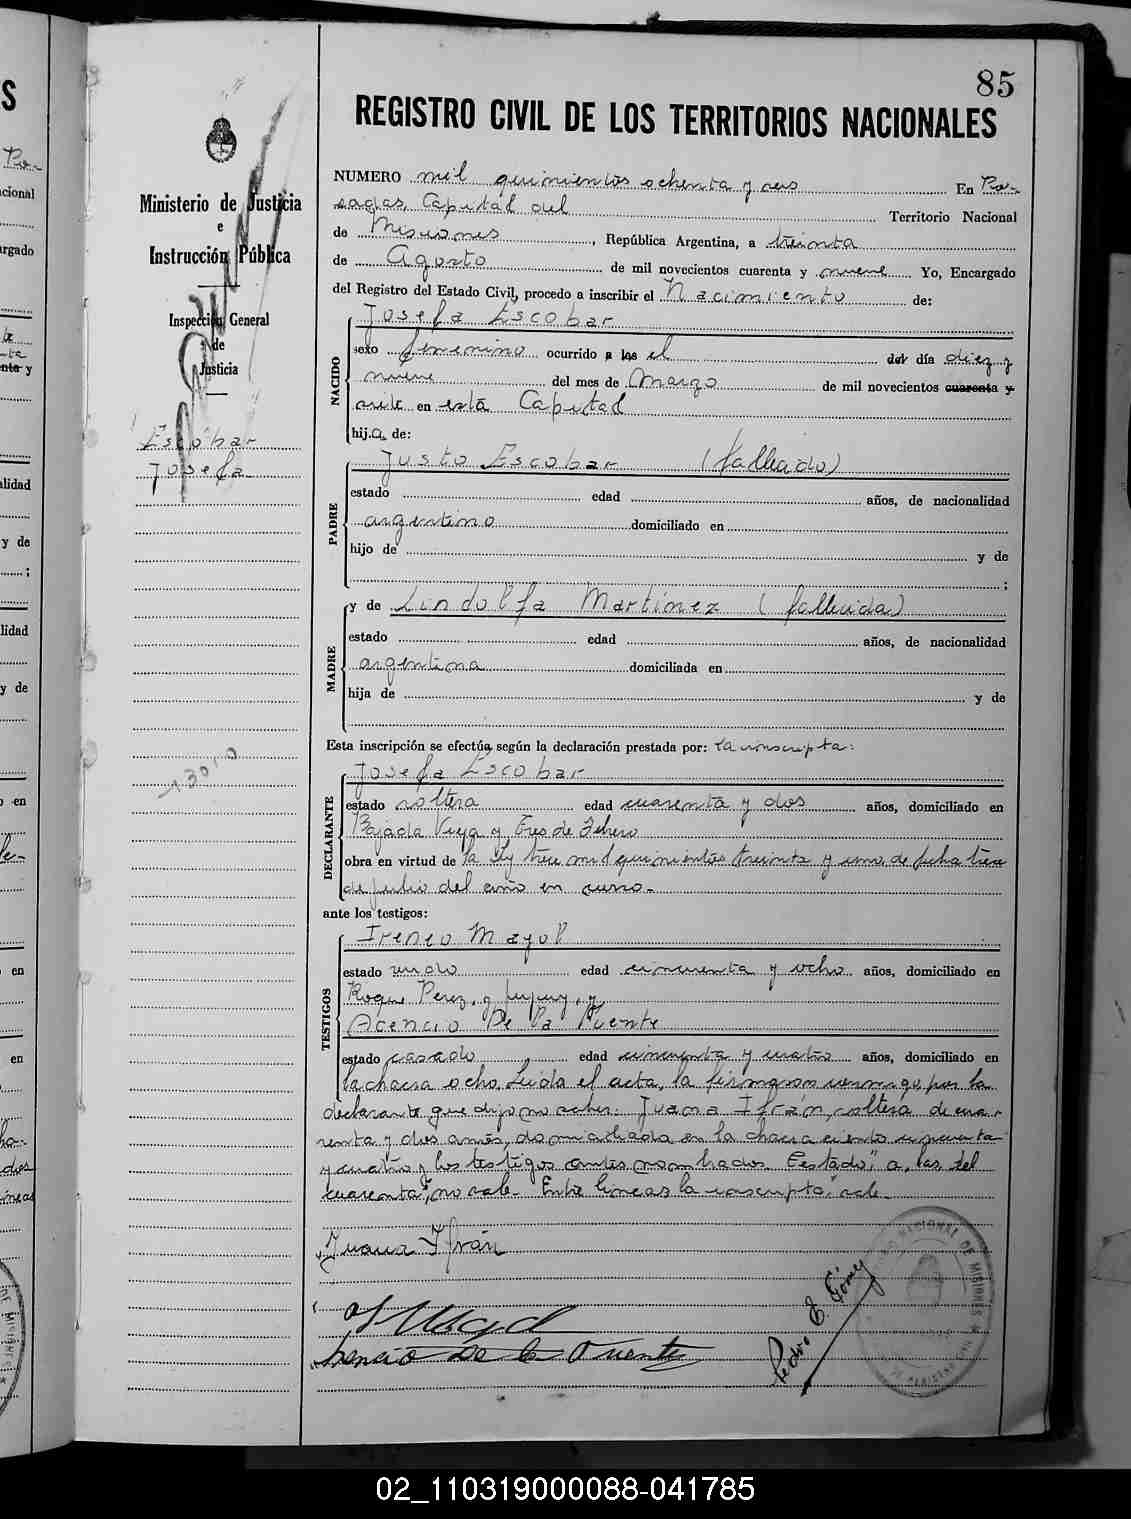 85
REGISTRO CIVIL DE LOS TERRITORIOS NACIONALES
Ministerio de Justicia
e
Instrucción Pública
Inspección General
de
Justicia
Escobar
Josefa
13010
NUMERO mil quinientos ochenta y seis En Po-
sadas, Capital del Territorio Nacional
de Misiones, República Argentina, a treinta
de Agosto de mil novecientos cuarenta y nueve Yo, Encargado
del Registro del Estado Civil, procedo a inscribir el Nacimiento de:
NACIDO
Josefa Escobar
sexo femenino ocurrido a las el del día diez y
nueve del mes de Marzo de mil novecientos cuarenta y
siete en esta Capital
hija de:
PADRE
Justo Escobar (fallecido)
estado edad años, de nacionalidad
argentino domiciliado en
hijo de y de
;
MADRE
y de Lindolfa Martinez (fallecida)
estado edad años, de nacionalidad
argentina domiciliada en
hija de y de
Esta inscripción se efectúa según la declaración prestada por: la inscripta:
DECLARANTE
Josefa Escobar
estado soltera edad cuarenta y dos años, domiciliado en
Bajada Vieja y Tres de Febrero
obra en virtud de la ley trece mil quinientos treinta y uno, de fecha trece
de julio del año en curso.-
ante los testigos:
TESTIGOS
Ireneo Mayol
estado viudo edad cincuenta y ocho años, domiciliado en
Roque Perez, y Jujuy, y
Acencio De la Puente
estado casado edad cincuenta y cuatro años, domiciliado en
la chacra ocho. Leida el acta, la firmaron conmigo, por la
declarante que dijo no saber: Juana Ifrán, soltera de cua-
renta y dos años, domiciliada en la chacra ciento cincuenta
y cuatro y los testigos antes nombrados. Testado: "a, las, del
cuarenta", no vale.- Entre lineas: la inscripta: vale.-
Juana Ifrán
I Mayol
Acencio De la Puente
Pedro E. Gómez
NACIONAL DE MISIONES
02_110319000088-041785